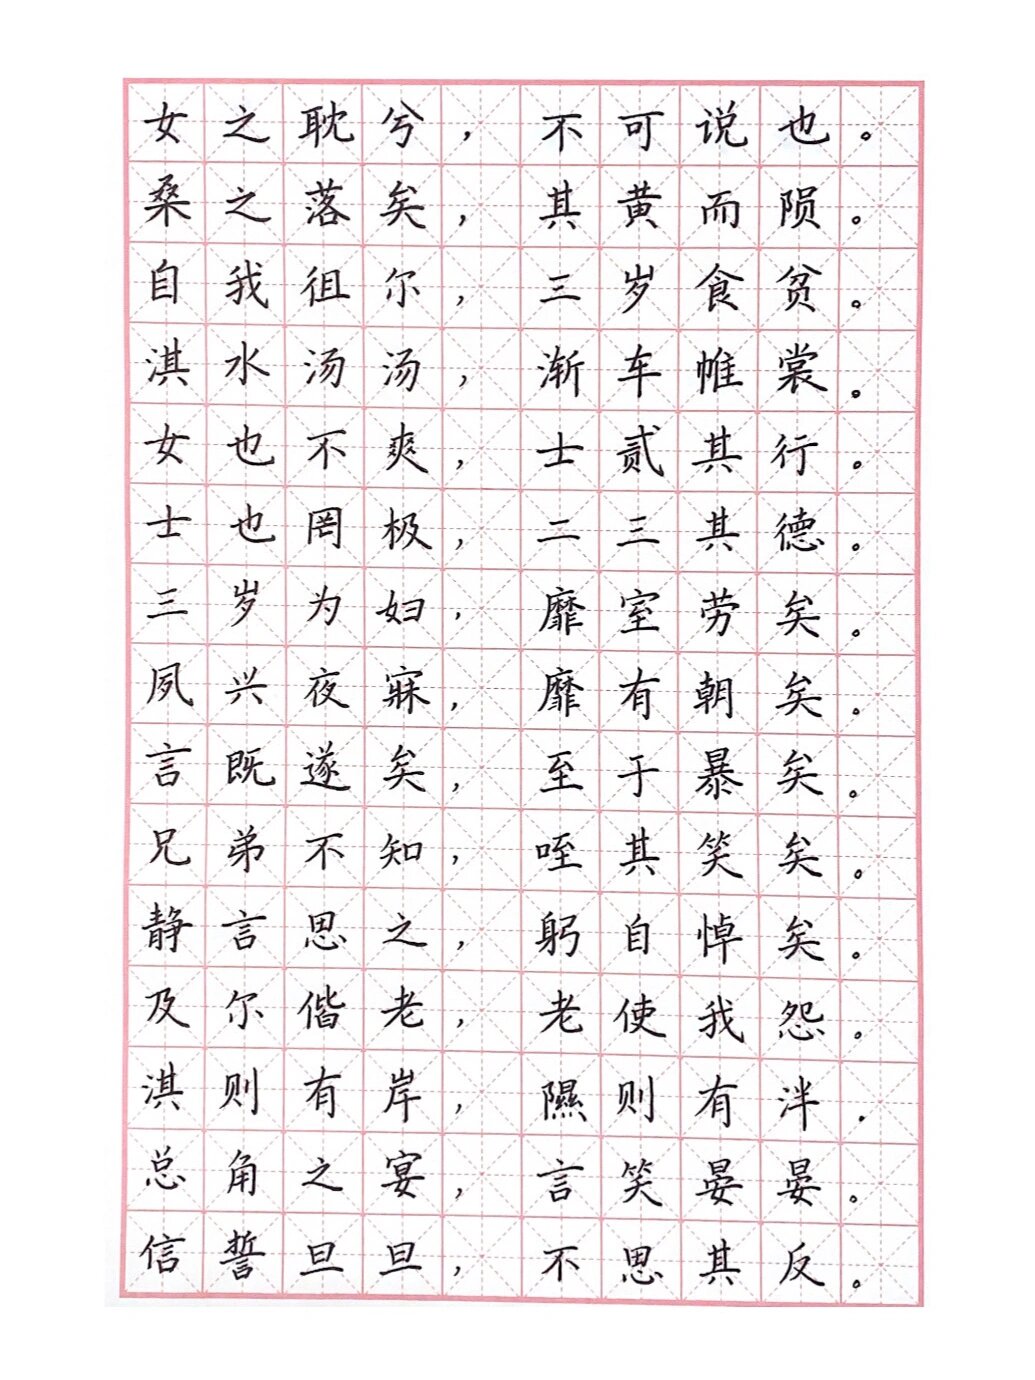 女之耽兮，不可说也。
桑之落矣，其黄而陨。
自我徂尔，三岁食贫。
淇水汤汤，渐车帷裳。
女也不爽，士贰其行。
士也罔极，二三其德。
三岁为妇，靡室劳矣。
夙兴夜寐，靡有朝矣。
言既遂矣，至于暴矣。
兄弟不知，咥其笑矣。
静言思之，躬自悼矣。
及尔偕老，老使我怨。
淇则有岸，隰则有泮.
总角之宴，言笑晏晏。
信誓旦旦，不思其反。